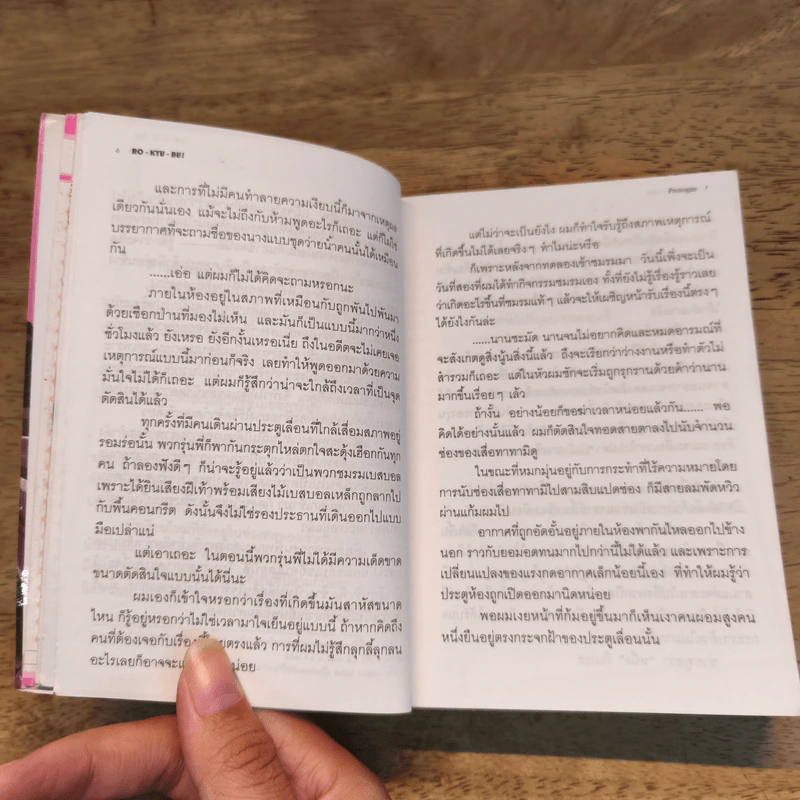 6 RO - KYU - BU!
และการที่ไม่มีคนทำลายความเงียบนี้ก็มาจากเหตุผล
เดียวกันนั่นเอง แม้จะไม่ถึงกับห้ามพูดอะไรก็เถอะ แต่ก็ไม่ใช่
บรรยากาศที่จะถามชื่อของนางแบบชุดว่ายน้ำคนนั้นได้เหมือน
กัน
......เอ่อ แต่ผมก็ไม่ได้คิดจะถามหรอกนะ
ภายในห้องอยู่ในสภาพที่เหมือนกับถูกพันไปพันมา
ด้วยเชือกป่านที่มองไม่เห็น และมันก็เป็นแบบนี้มากว่าหนึ่ง
ชั่วโมงแล้ว ยังเหรอ ยังอีกงั้นเหรอเนี่ย ถึงในอดีตจะไม่เคยเจอ
เหตุการณ์แบบนี้มาก่อนก็จริง เลยทำให้พูดออกมาด้วยความ
มั่นใจไม่ได้ก็เถอะ แต่ผมก็รู้สึกว่าน่าจะใกล้ถึงเวลาที่เป็นจุด
ตัดสินได้แล้ว
ทุกครั้งที่มีคนเดินผ่านประตูเลื่อนที่ใกล้เสื่อมสภาพอยู่
รอมร่อนั้น พวกรุ่นพี่ก็พากันกระตุกไหล่ตกใจสะดุ้งเฮือกกันทุก
คน ถ้าลองฟังดีๆ ก็น่าจะรู้อยู่แล้วว่าเป็นพวกชมรมเบสบอล
เพราะได้ยินเสียงฝีเท้าพร้อมเสียงไม้เบสบอลเหล็กถูกลากไป
กับพื้นคอนกรีต ดังนั้นจึงไม่ใช่รองประธานที่เดินออกไปแบบ
มือเปล่าแน่
แต่เอาเถอะ ในตอนนี้พวกรุ่นพี่ไม่ได้มีความเด็ดขาด
ขนาดตัดสินใจแบบนั้นได้นี่นะ
ผมเองก็เข้าใจหรอกว่าเรื่องที่เกิดขึ้นมันสาหัสขนาด
ไหน ก็รู้อยู่หรอกว่าไม่ใช่เวลามาใจเย็นอยู่แบบนี้ ถ้าหากคิดถึง
คนที่ต้องเจอกับเรื่อง ตรงแล้ว การที่ผมไม่รู้สึกลุกลี้ลุกลน
อะไรเลยก็อาจจะ น่อย
Prologue 7
แต่ไม่ว่าจะเป็นยังไง ผมก็ทำใจรับรู้ถึงสภาพเหตุการณ์
ที่เกิดขึ้นไม่ได้เลยจริงๆ ทำไมน่ะหรือ
ก็เพราะหลังจากทดลองเข้าชมรมมา วันนี้เพิ่งจะเป็น
วันที่สองที่ผมได้ทำกิจกรรมชมรมเอง ทั้งที่ยังไม่รู้เรื่องรู้ราวเลย
ว่าเกิดอะไรขึ้นที่ชมรมแท้ๆ แล้วจะให้เผชิญหน้ารับเรื่องนี้ตรงๆ
ได้ยังไงกันล่ะ
......นานชะมัด นานจนไม่อยากคิดและหมดอารมณ์ที่
จะสังเกตดูสิ่งนู้นสิ่งนี้แล้ว ถึงจะเรียกว่าว่างงานหรือทำตัวไม่
สำรวมก็เถอะ แต่ในหัวผมชักจะเริ่มถูกรุกรานด้วยคำว่านาน
มากขึ้นเรื่อยๆ แล้ว
ถ้างั้น อย่างน้อยก็ขอฆ่าเวลาหน่อยแล้วกัน...... พอ
คิดได้อย่างนั้นแล้ว ผมก็ตัดสินใจทอดสายตาลงไปนับจำนวน
ช่องของเสื่อทาทามิดู
ในขณะที่หมกมุ่นอยู่กับการกระทำที่ไร้ความหมายโดย
การนับช่องเสื่อทาทามิไปสามสิบแปดช่อง ก็มีสายลมพัดหวิว
ผ่านแก้มผมไป
อากาศที่ถูกอัดอั้นอยู่ภายในห้องพากันไหลออกไปข้าง
นอก ราวกับยอมอดทนมากไปกว่านี้ไม่ได้แล้ว และเพราะการ
เปลี่ยนแปลงของแรงกดอากาศเล็กน้อยนี้เอง ที่ทำให้ผมรู้ว่า
ประตูห้องถูกเปิดออกมานิดหน่อย
พอผมเงยหน้าที่ก้มอยู่ขึ้นมาก็เห็นเงาคนผอมสูงคน
หนึ่งยืนอยู่ตรงกระจกฝ้าของประตูเลื่อนนั้น